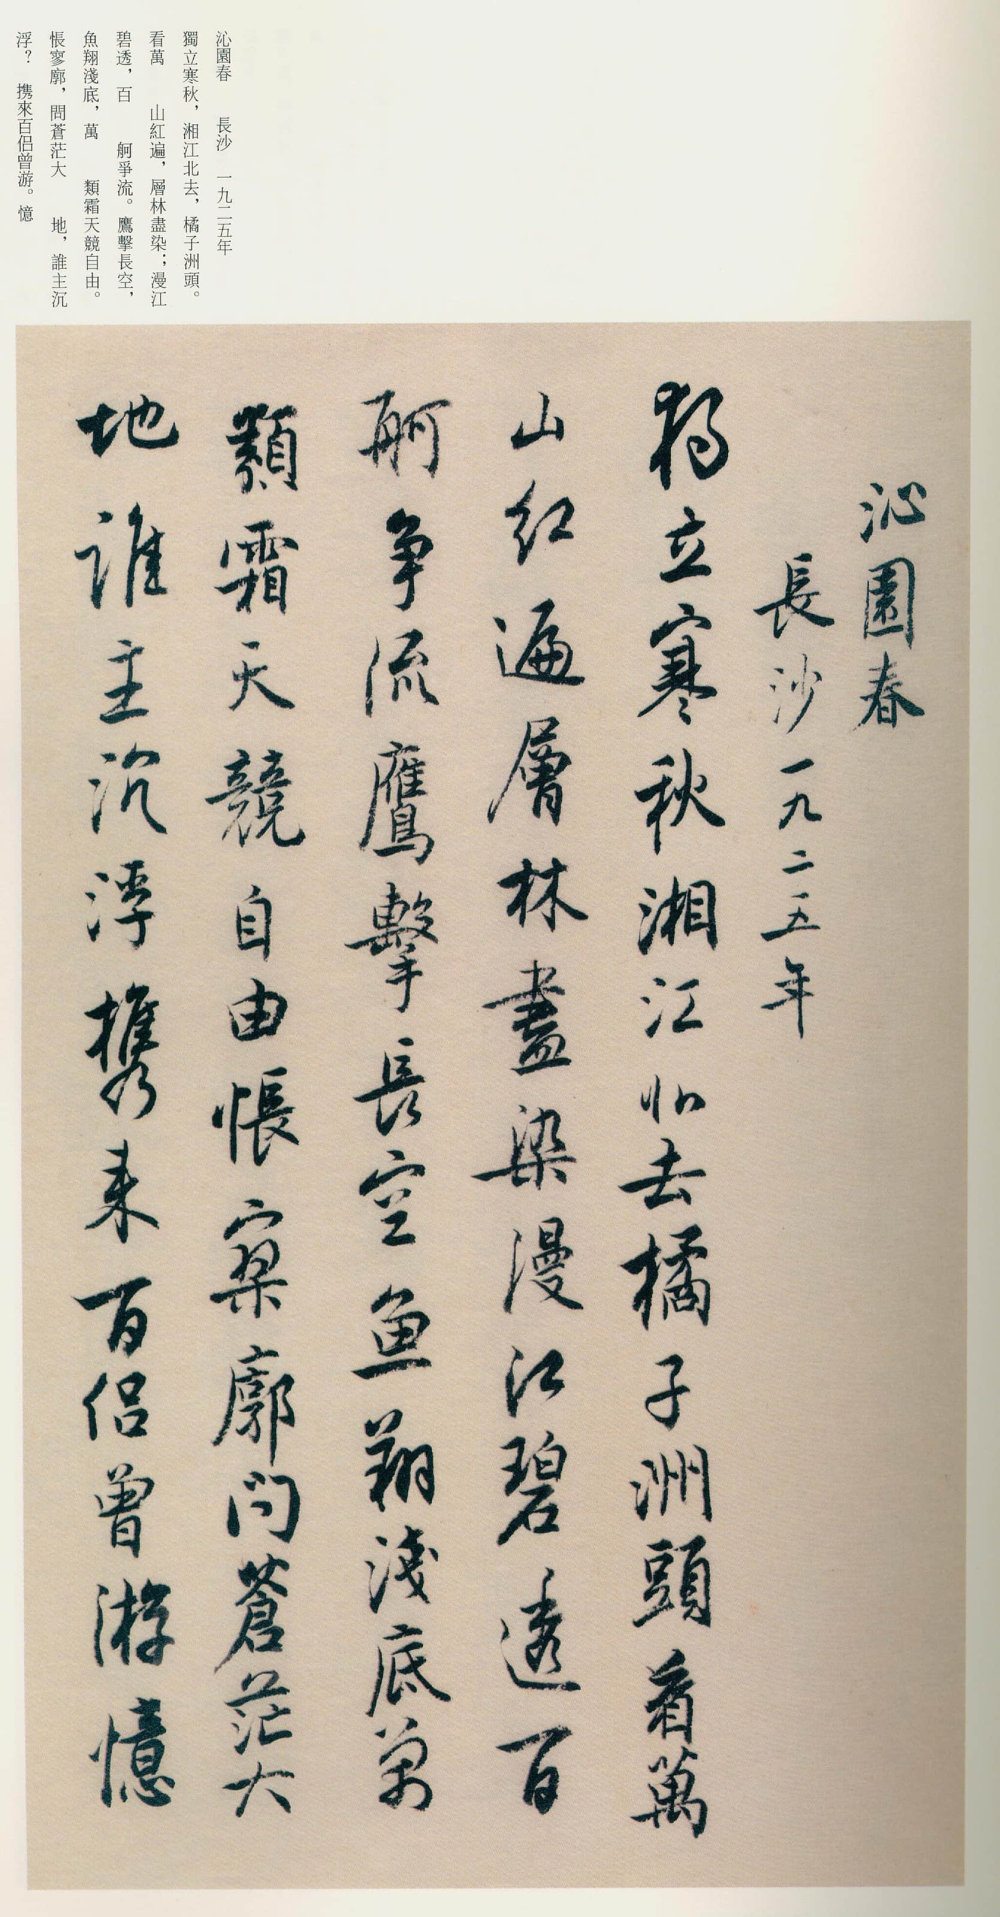 沁園春　長沙　一九二五年
獨立寒秋，湘江北去，橘子洲頭。
看萬　山紅遍，層林盡染；漫江
碧透，百　舸爭流。鷹擊長空，
魚翔淺底，萬　類霜天競自由。
悵寥廓，問蒼茫大　地，誰主沉
浮？　携來百侣曾游。憶
沁園春
長沙一九二五年
独立寒秋湘江北去橘子洲頭看萬
山红遍層林盡染漫江碧透百
舸争流鷹擊長空鱼翔淺底萬
類霜天競自由悵寥廓问蒼茫大
地谁主沉浮携来百侣曾游憶